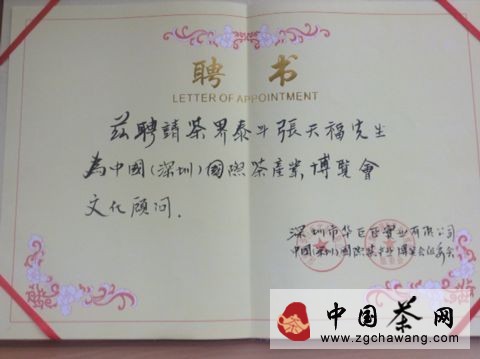 聘书
LETTER OF APPOINTMENT
兹聘請茶界泰斗張天福先生
為中國(深圳)國際茶產業博覽會
文化顾问.
深圳市华巨臣实业有限公司
中國(深圳)國際茶业博览会组委会
中国茶网
www.zgchawang.com